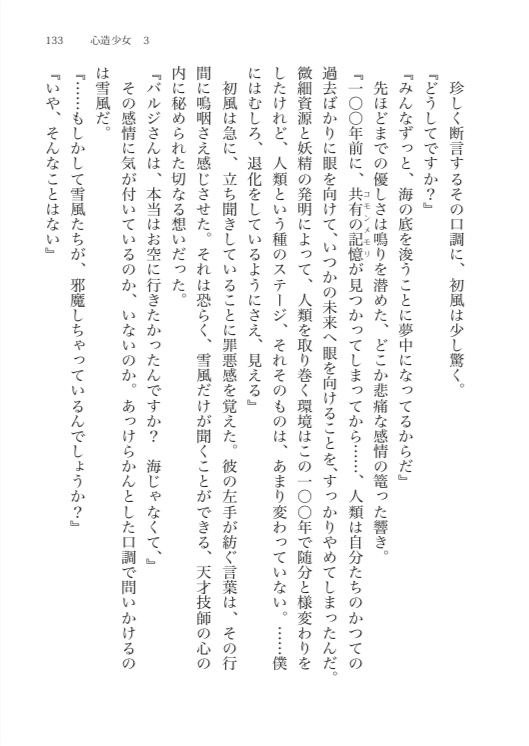 133　心造少女　3
珍しく断言するその口調に、初風は少し驚く。
『どうしてですか？』
『みんなずっと、海の底を浚うことに夢中になってるからだ』
先ほどまでの優しさは鳴りを潜めた、どこか悲痛な感情の篭った響き。
『一〇〇年前に、共有の記憶が見つかってしまってから……、人類は自分たちのかつての
コモンメモリ
過去ばかりに眼を向けて、いつかの未来へ眼を向けることを、すっかりやめてしまったんだ。
微細資源と妖精の発明によって、人類を取り巻く環境はこの一〇〇年で随分と様変わりを
したけれど、人類という種のステージ、それそのものは、あまり変わっていない。……僕
にはむしろ、退化をしているようにさえ、見える』
初風は急に、立ち聞きしていることに罪悪感を覚えた。彼の左手が紡ぐ言葉は、その行
間に嗚咽さえ感じさせた。それは恐らく、雪風だけが聞くことができる、天才技師の心の
内に秘められた切なる想いだった。
『バルジさんは、本当はお空に行きたかったんですか？　海じゃなくて、』
その感情に気が付いているのか、いないのか。あっけらかんとした口調で問いかけるの
は雪風だ。
『……もしかして雪風たちが、邪魔しちゃっているんでしょうか？』
『いや、そんなことはない』